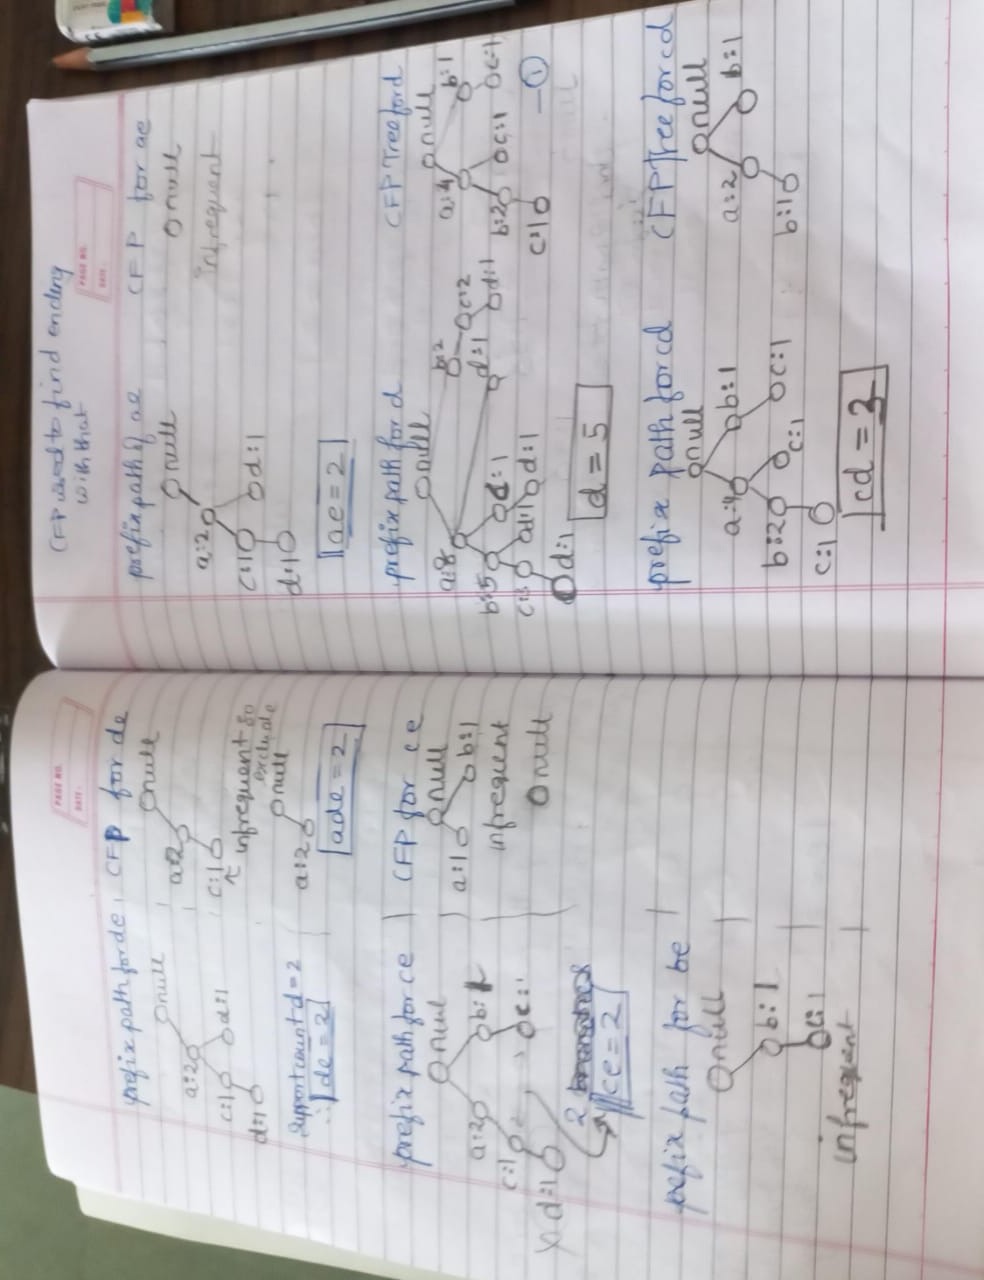 PAGE NO.
DATE:
prefix path for de
null
a:2
c:1
d:1
d:1
Support count d = 2
∴ de = 2
CFP for de
null
a:2
c:1
↑ infrequent so
exclude
null
a:2
ade = 2
prefix path for ce
null
a:2
b:1
c:1
c:1
x d:1
2
ce = 2
CFP for ce
null
a:1
b:1
infrequent
null
prefix path for be
null
b:1
c:1
infrequent
CFP used to find ending
with that
PAGE NO.
DATE:
prefix path of ae
null
a:2
c:1
d:1
d:1
ae = 2
CFP for ae
null
infrequent
prefix path for d
null
a:8
b:2
c:2
b:5
c:1
d:1
d:1
c:3
d:1
d:1
d:1
d = 5
CFP Tree for d
null
a:4
b:1
b:2
c:1
c:1
c:1
—①
prefix path for cd
null
a:4
b:1
b:2
c:1
c:1
c:1
cd = 3
CFP Tree for cd
null
a:2
b:1
b:1